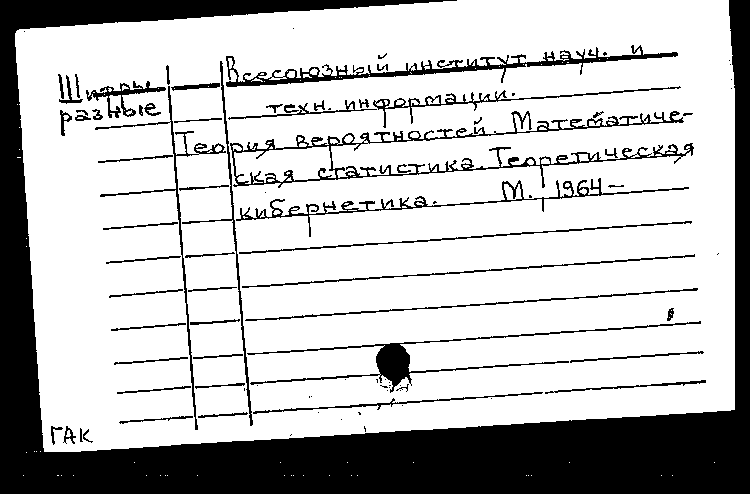 Шифры Всесоюзный институт науч. и
разные техн. информации.
Теория вероятностей. Математиче-
ская статистика. Теоретическая
кибернетика. М., 1964—
ГАК